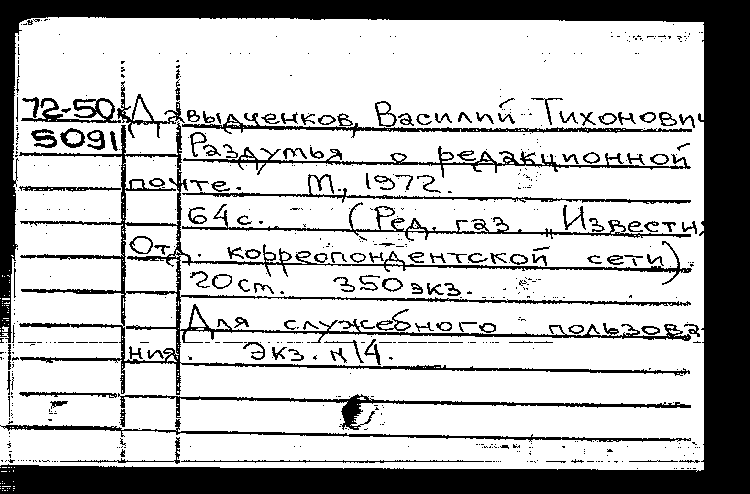 72-50к Давыдченков, Василий Тихонович
5091 Раздумья о редакционной
почте. М., 1972.
64 с. (Ред. газ. „Известия
Отд. корреспондентской сети)
20 см. 350 экз.
Для служебного пользова-
ния. Экз. №14.